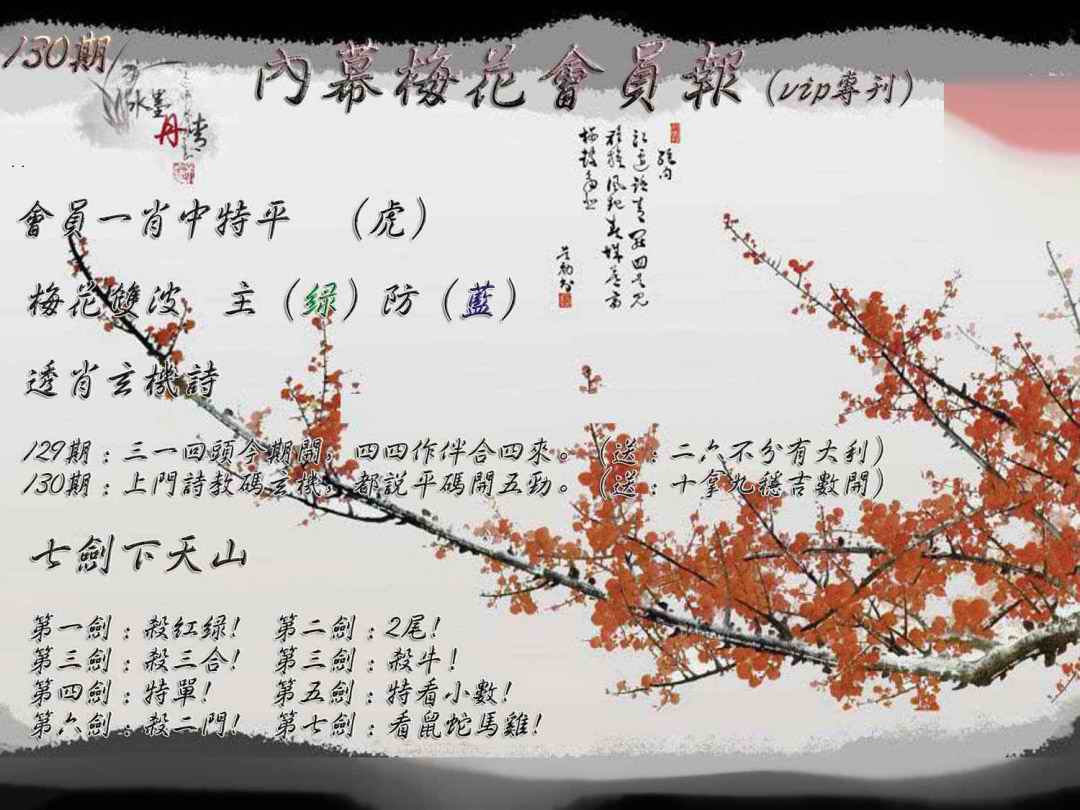 130期
內幕梅花會員報(vip專刊)
水墨
丹青
會員一肖中特平 (虎)
梅花雙波 主(绿)防(藍)
透肖玄機詩
129期:三一回頭今期開,四四作伴合四來。(送:二六不分有大利)
130期:上門詩教碼玄機,都説平碼開五勁。(送:十拿九穩吉數開)
七劍下天山
第一劍:殺红绿! 第二劍:2尾!
第三劍:殺三合! 第三劍:殺牛!
第四劍:特單! 第五劍:特看小數!
第六劍:殺二門! 第七劍:看鼠蛇馬雞!